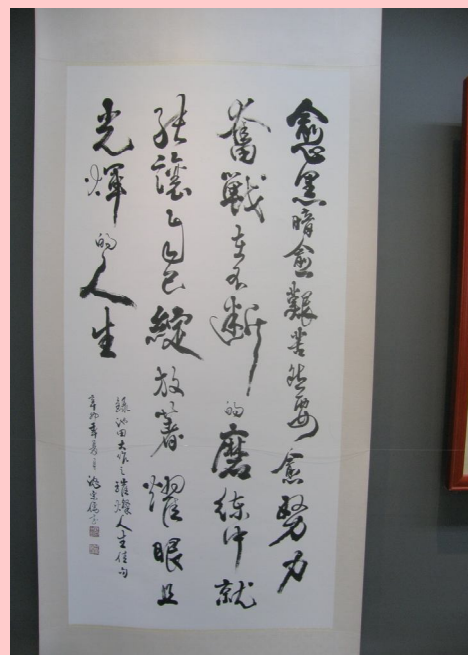 愈黑暗愈艱苦要愈努力
奮戰在不斷的磨練中就
能讓自己綻放著耀眼且
光輝的人生
錄池田大作之璀璨人生佳句
辛卯年夏月